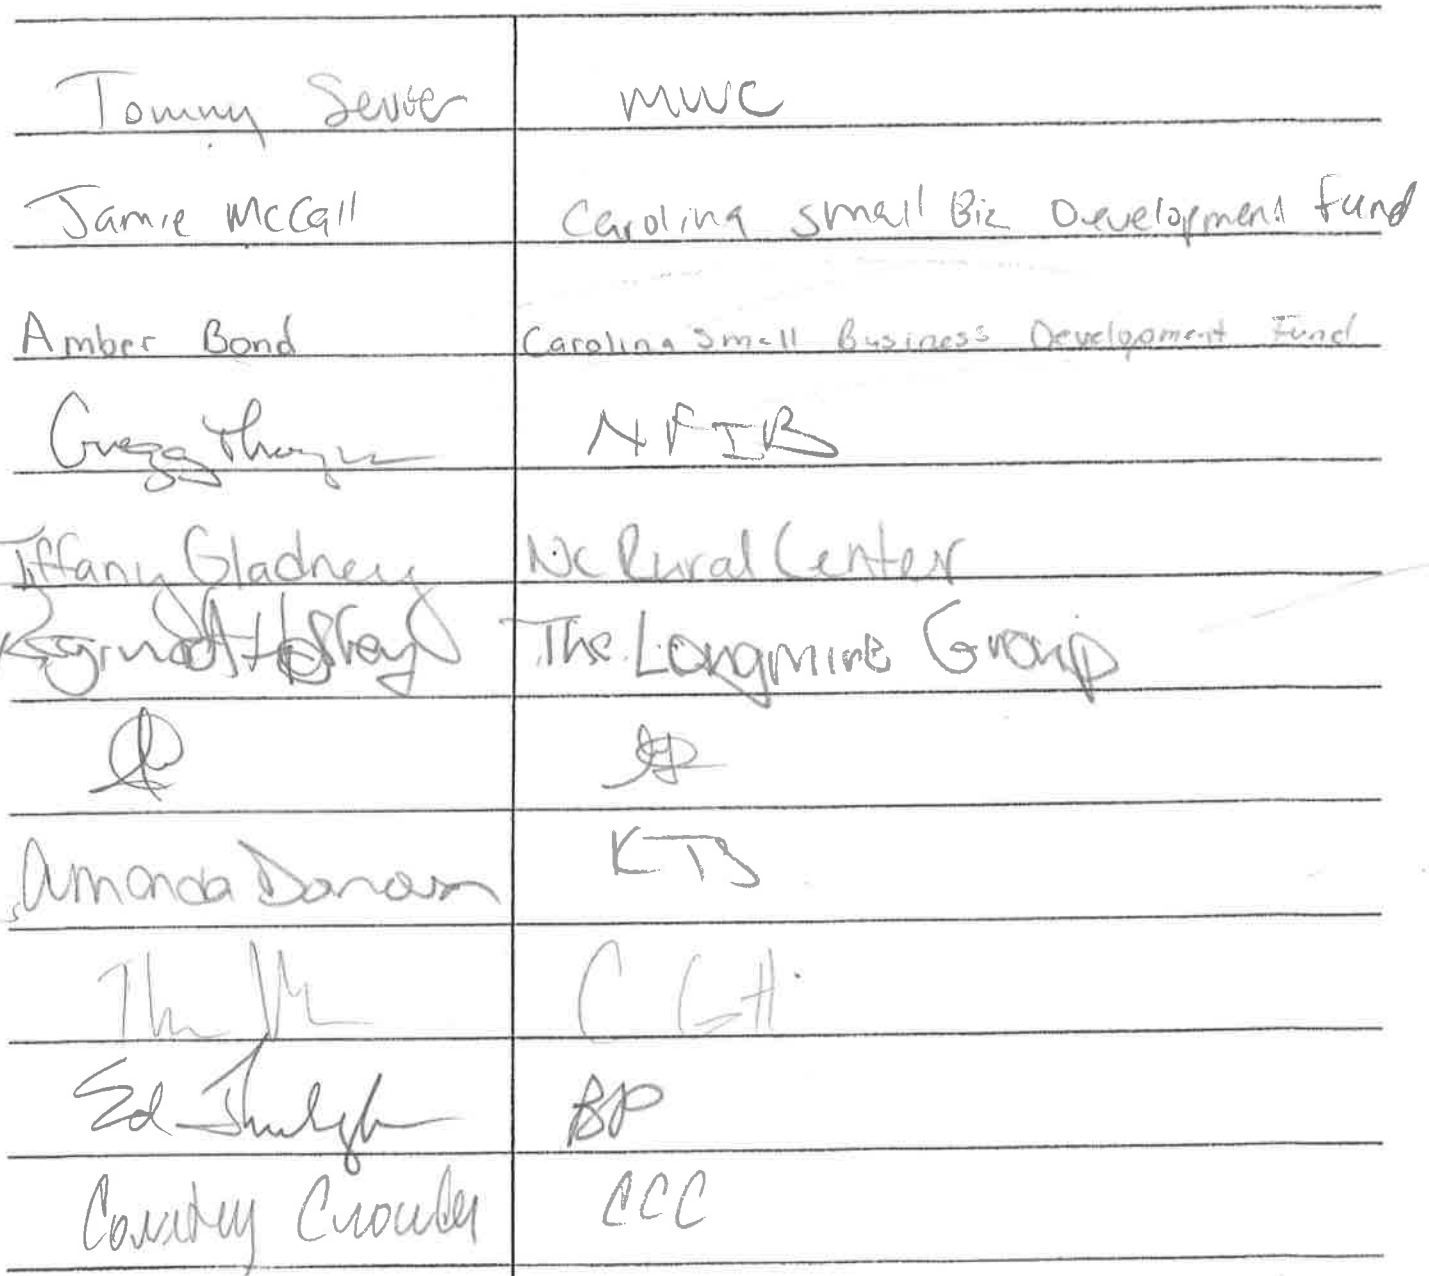 Tommy Sevier MWC
Jamie McCall Carolina Small Biz Development Fund
Amber Bond Carolina Small Business Development Fund
Gregg Thompson NFIB
Tiffany Gladney NC Rural Center
The Longmire Group
Amanda Donovan KTS
BP
Courtney Crowder CCC